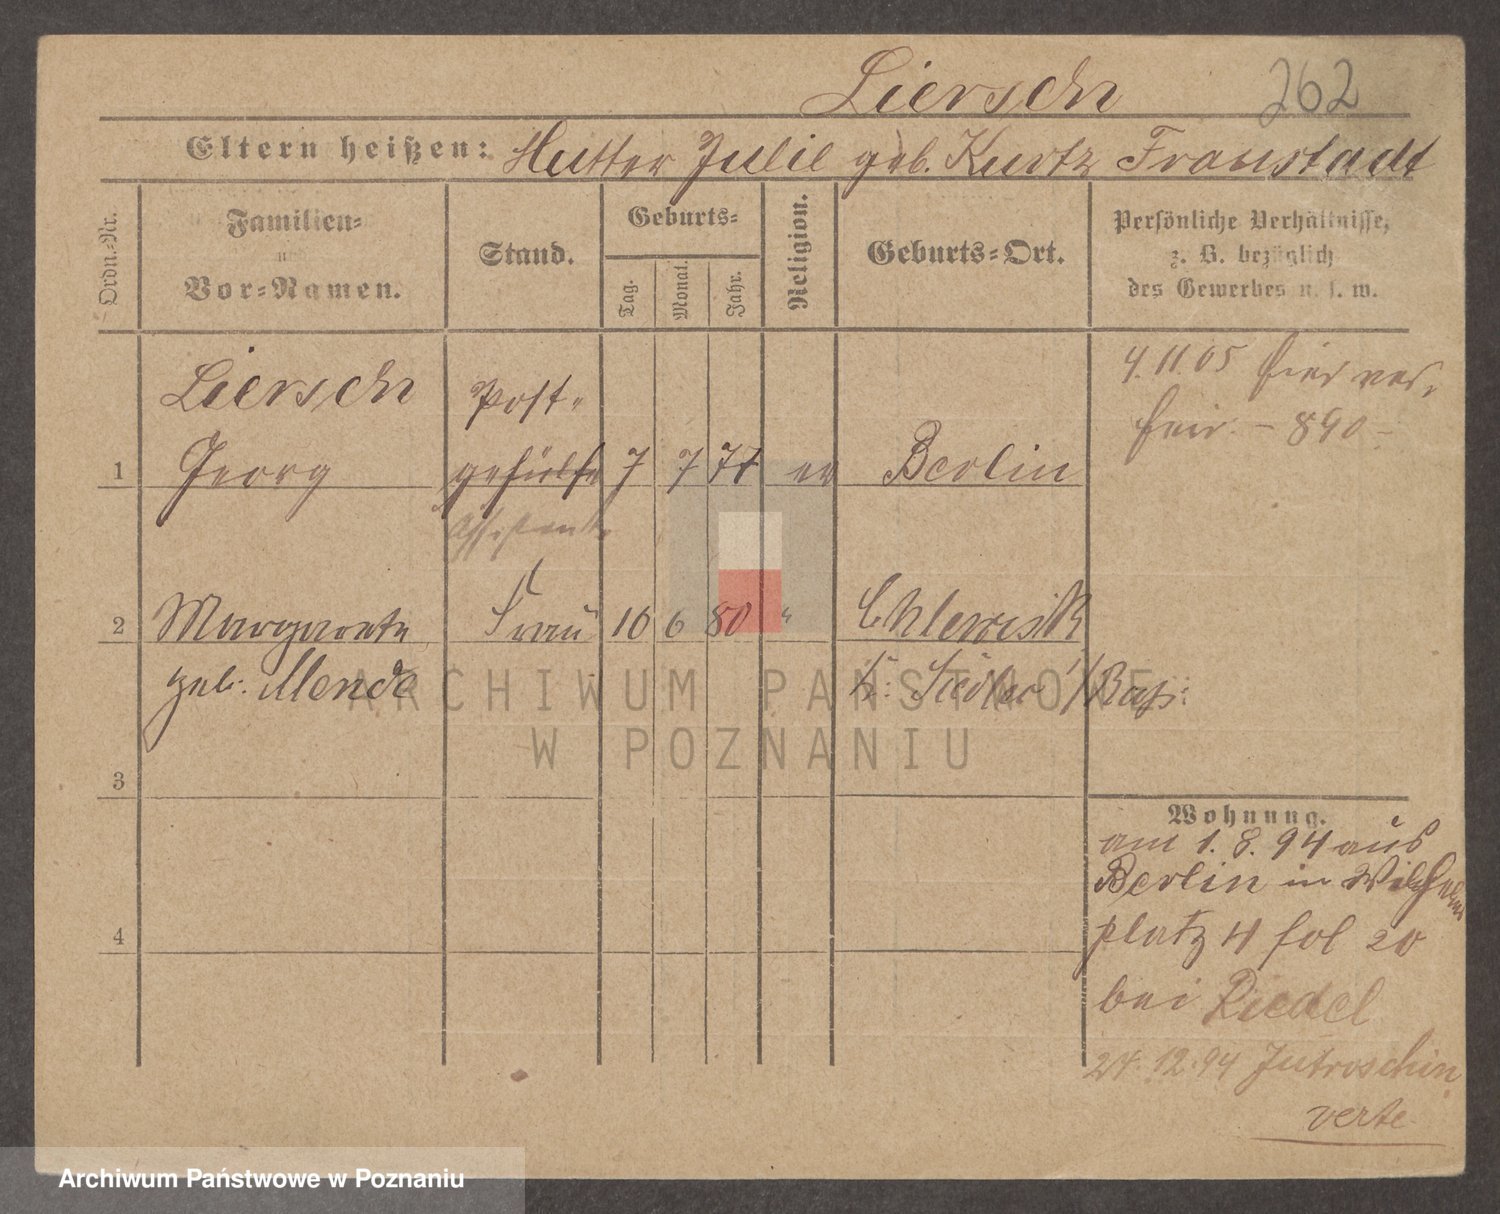 Liersch 262
Eltern heißen: Mutter Julie geb. Kurtz Fraustadt
Ordn.-Nr.
Familien-
und
Vor-Namen.
Stand.
Geburts-
Tag.
Monat.
Jahr.
Religion.
Geburts-Ort.
Persönliche Verhältnisse,
z. B. bezüglich
des Gewerbes u. s. w.
Liersch
Post-
4.11.05 hier
- 890 -
1 Georg gehülfe 7 7 77 ev Berlin
Assistent
2 Margarete Frau 10 6 80 "
geb. Mende
3
4
Wohnung.
am 1. 8. 94 aus
Berlin in Wilhelms
platz 4 fol 20
bei Riedel
24.12.94 Jutroschin
verte
ARCHIWUM PAŃSTWOWE
W POZNANIU
Archiwum Państwowe w Poznaniu